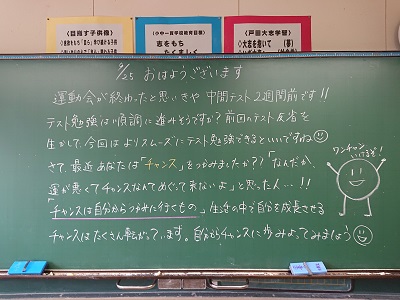 〈目指す子供像〉
〈小中一貫学校教育目標〉
志をもち
たくましく
〈戸田大志学習〉
大志を抱いて
5/25 おはようございます
運動会が終わったと思いきや 中間テスト2週間前です!!
テスト勉強は順調に進みそうですか?前回のテスト反省を
生かして、今回はよりスムーズにテスト勉強できるといいですね
さて、最近あなたは「チャンス」をつかみましたか?!「なんだか、
運が悪くてチャンスなんてめぐって来ないよ」と思った人…!!
「チャンスは自分からつかみに行くもの」生活の中で自分を成長させる
チャンスはたくさん転がっています。自分からチャンスに歩みよってみましょう
ワンチャン
いけるぞ!